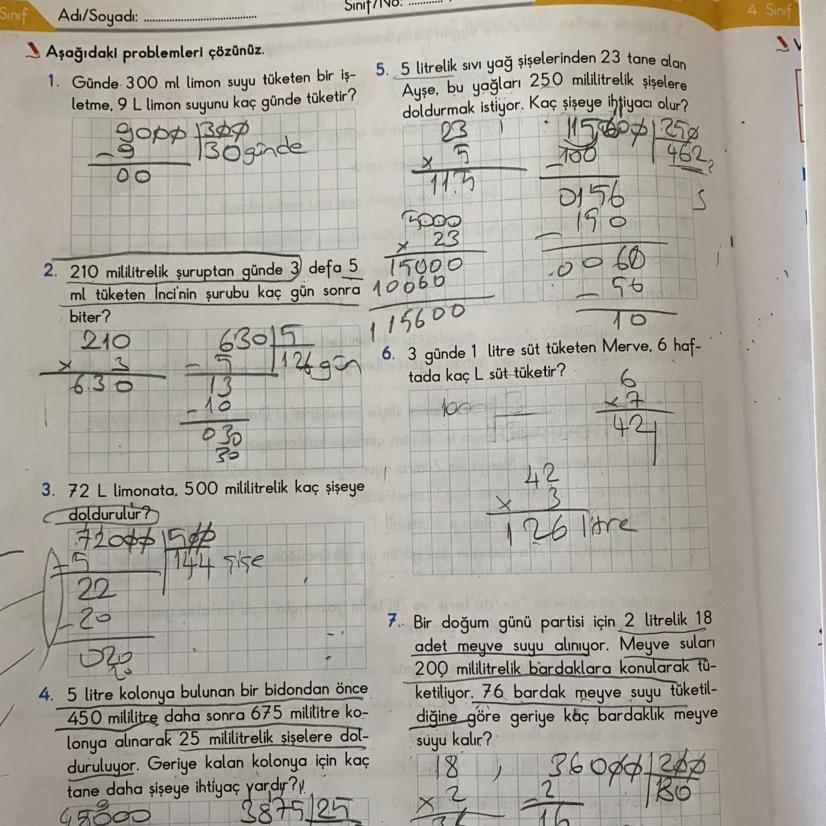 Sınıf
Adı/Soyadı:
Sınıf/No:
4. Sınıf
Aşağıdaki problemleri çözünüz.
1. Günde 300 ml limon suyu tüketen bir iş-
letme, 9 L limon suyunu kaç günde tüketir?
9000 300
- 9 30 günde
00
2. 210 mililitrelik şuruptan günde 3 defa 5
ml tüketen İnci'nin şurubu kaç gün sonra
biter?
210 630 5
x 3 - 5 126 gün
630 13
- 10
030
30
3. 72 L limonata, 500 mililitrelik kaç şişeye
doldurulur?
72000 500
- 5 144 şişe
22
- 20
020
20
4. 5 litre kolonya bulunan bir bidondan önce
450 mililitre daha sonra 675 mililitre ko-
lonya alınarak 25 mililitrelik şişelere dol-
duruluyor. Geriye kalan kolonya için kaç
tane daha şişeye ihtiyaç vardır?
3875 25
5. 5 litrelik sıvı yağ şişelerinden 23 tane alan
Ayşe, bu yağları 250 mililitrelik şişelere
doldurmak istiyor. Kaç şişeye ihtiyacı olur?
23 250
x 5 - 100 462
115 0156
5000 - 150
x 23 0060
15000 - 50
10000 10
115600
6. 3 günde 1 litre süt tüketen Merve, 6 haf-
tada kaç L süt tüketir?
6
x 7
42
42
x 3
126 litre
7. Bir doğum günü partisi için 2 litrelik 18
adet meyve suyu alınıyor. Meyve suları
200 mililitrelik bardaklara konularak tü-
ketiliyor. 76 bardak meyve suyu tüketil-
diğine göre geriye kaç bardaklık meyve
suyu kalır?
18 36000 200
x 2 - 2 180
16